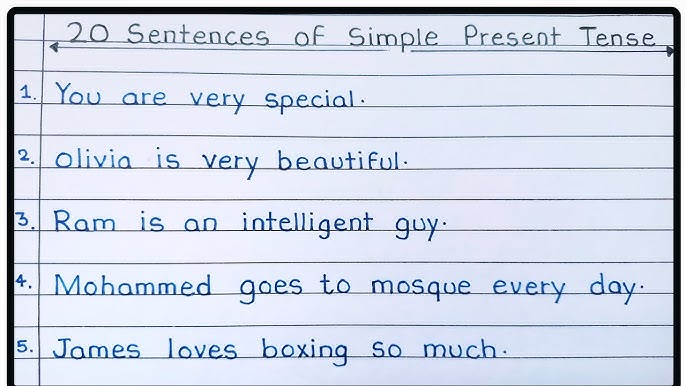 20 Sentences of Simple Present Tense
1. You are very special.
2. Olivia is very beautiful.
3. Ram is an intelligent guy.
4. Mohammed goes to mosque every day.
5. James loves boxing so much.